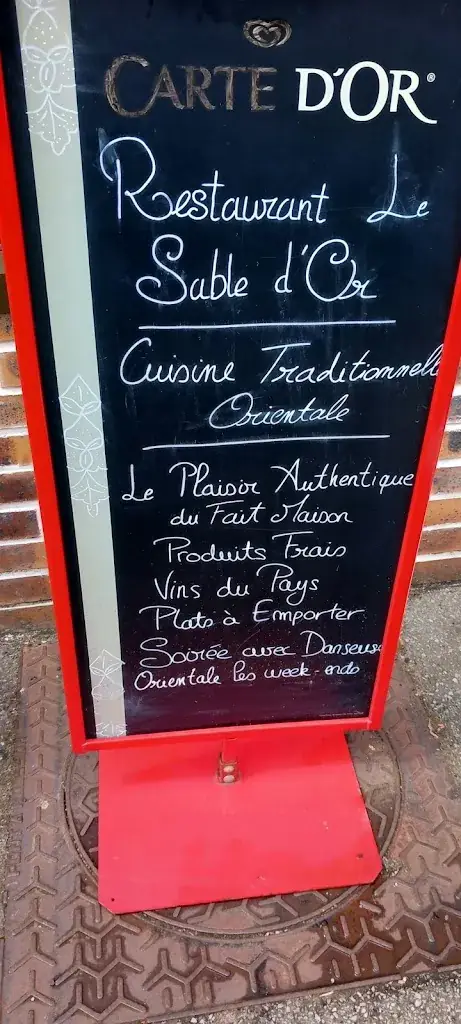 CARTE D'OR®
Restaurant Le
Sable d'Or
Cuisine Traditionnelle
Orientale
Le Plaisir Authentique
du Fait Maison
Produits Frais
Vins du Pays
Plats à Emporter
Soirée avec Danseuse
Orientale les week-ends